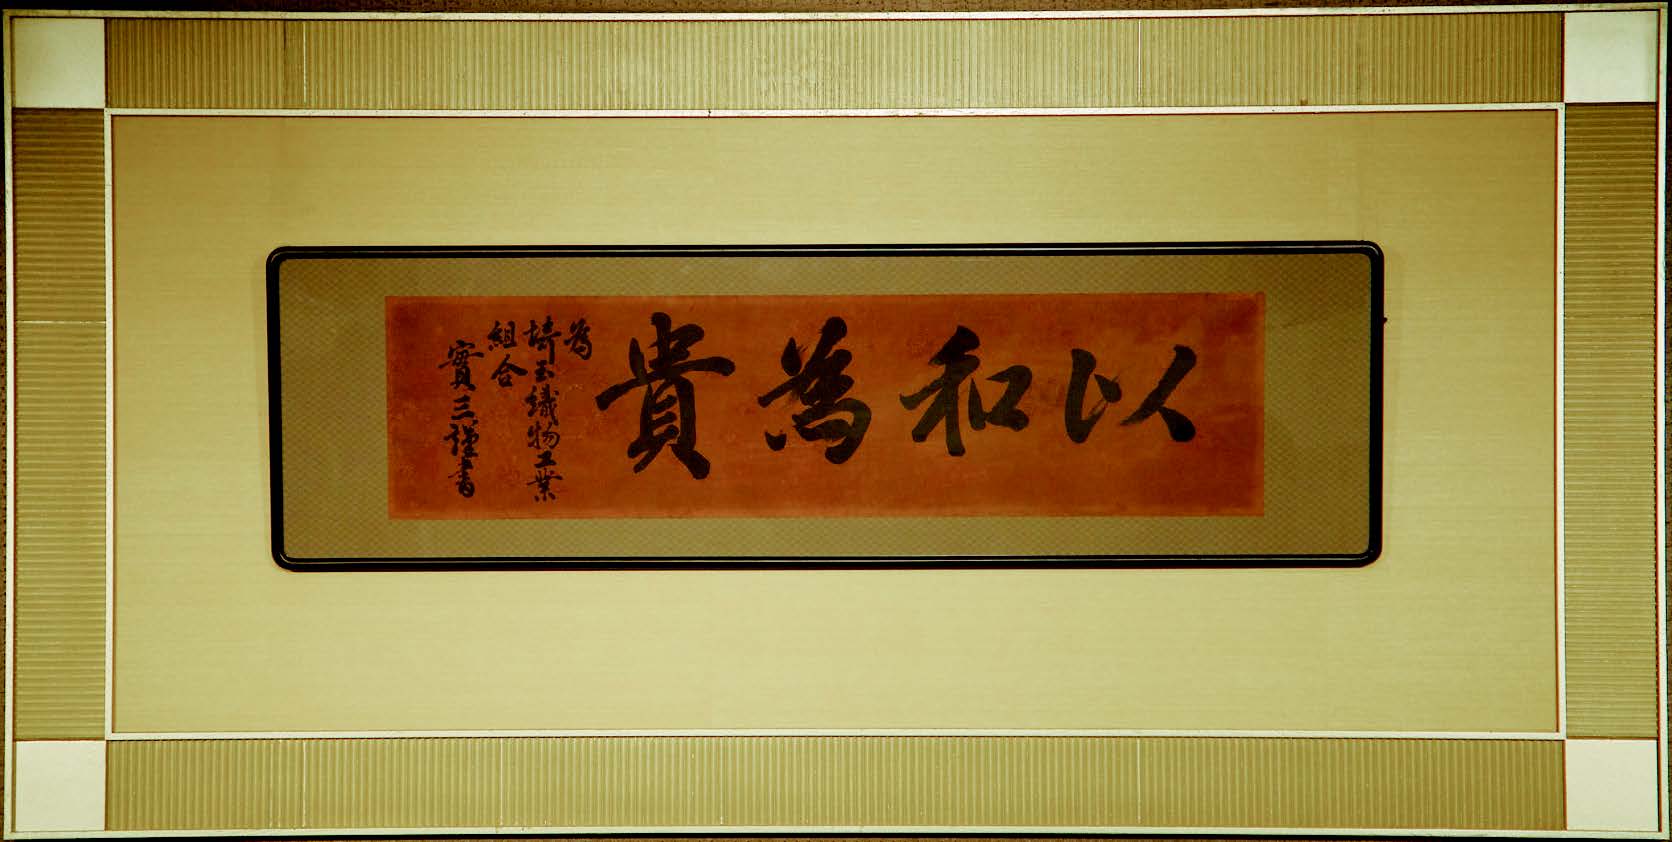 以和為貴
為
埼玉織物工業
組合
實三謹書